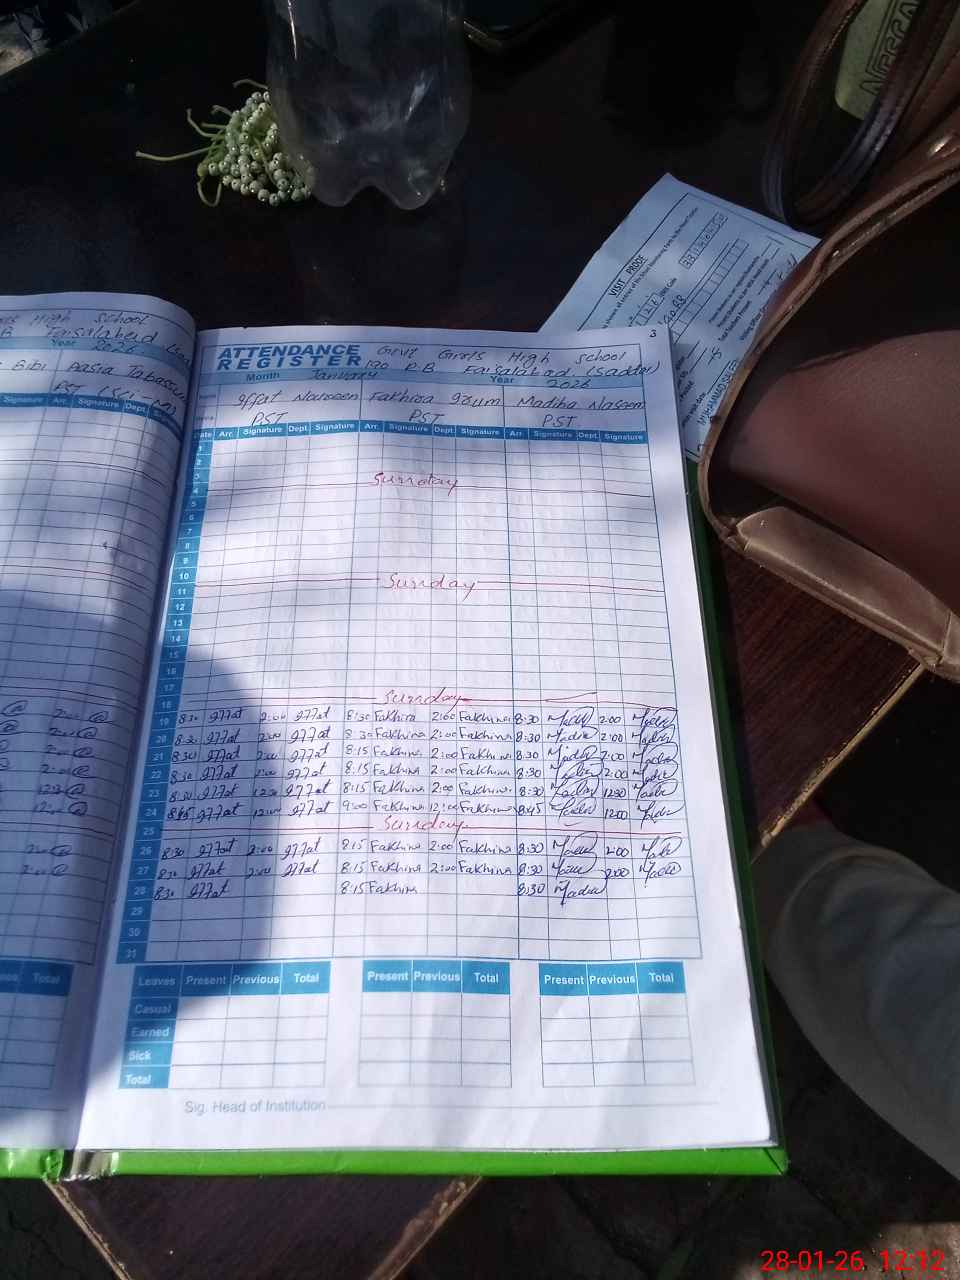 NESCAF
VISIT PROOF
EMIS Code
3
High School
Faisalabad (Sadd
Year 2026
Bibi Aasia Tabassum
PST (Sci-M)
Signature Arr. Signature Dept. Signature
ATTENDANCE REGISTER
Govt Girls High School
190 R.B Faisalabad (Saddar)
Month January Year 2026
Iffat Nasreen Fakhira Irum Madiha Naseem
PST PST PST
Date Arr. Signature Dept. Signature Arr. Signature Dept. Signature Arr. Signature Dept. Signature
1
2
3
Sunday
4
5
6
7
8
9
10
Sunday
11
12
13
14
15
16
17
Sunday
18
19 8:30 Iffat 2:00 Iffat 8:30 Fakhira 2:00 Fakhira 8:30 Madiha 2:00 Madiha
20 8:30 Iffat 2:00 Iffat 8:30 Fakhira 2:00 Fakhira 8:30 Madiha 2:00 Madiha
21 8:30 Iffat 2:00 Iffat 8:15 Fakhira 2:00 Fakhira 8:30 Madiha 2:00 Madiha
22 8:30 Iffat 2:00 Iffat 8:15 Fakhira 2:00 Fakhira 8:30 Madiha 2:00 Madiha
23 8:30 Iffat 12:30 Iffat 8:15 Fakhira 2:00 Fakhira 8:30 Madiha 12:30 Madiha
24 8:45 Iffat 12:00 Iffat 9:00 Fakhira 12:00 Fakhira 8:45 Madiha 12:00 Madiha
25 Sunday
26 8:30 Iffat 2:00 Iffat 8:15 Fakhira 2:00 Fakhira 8:30 Madiha 2:00 Madiha
27 8:30 Iffat 2:00 Iffat 8:15 Fakhira 2:00 Fakhira 8:30 Madiha 2:00 Madiha
28 8:30 Iffat 8:15 Fakhira 8:30 Madiha
29
30
31
Total
Leaves Present Previous Total Present Previous Total Present Previous Total
Casual
Earned
Sick
Total
Sig. Head of Institution
28-01-26 12:12